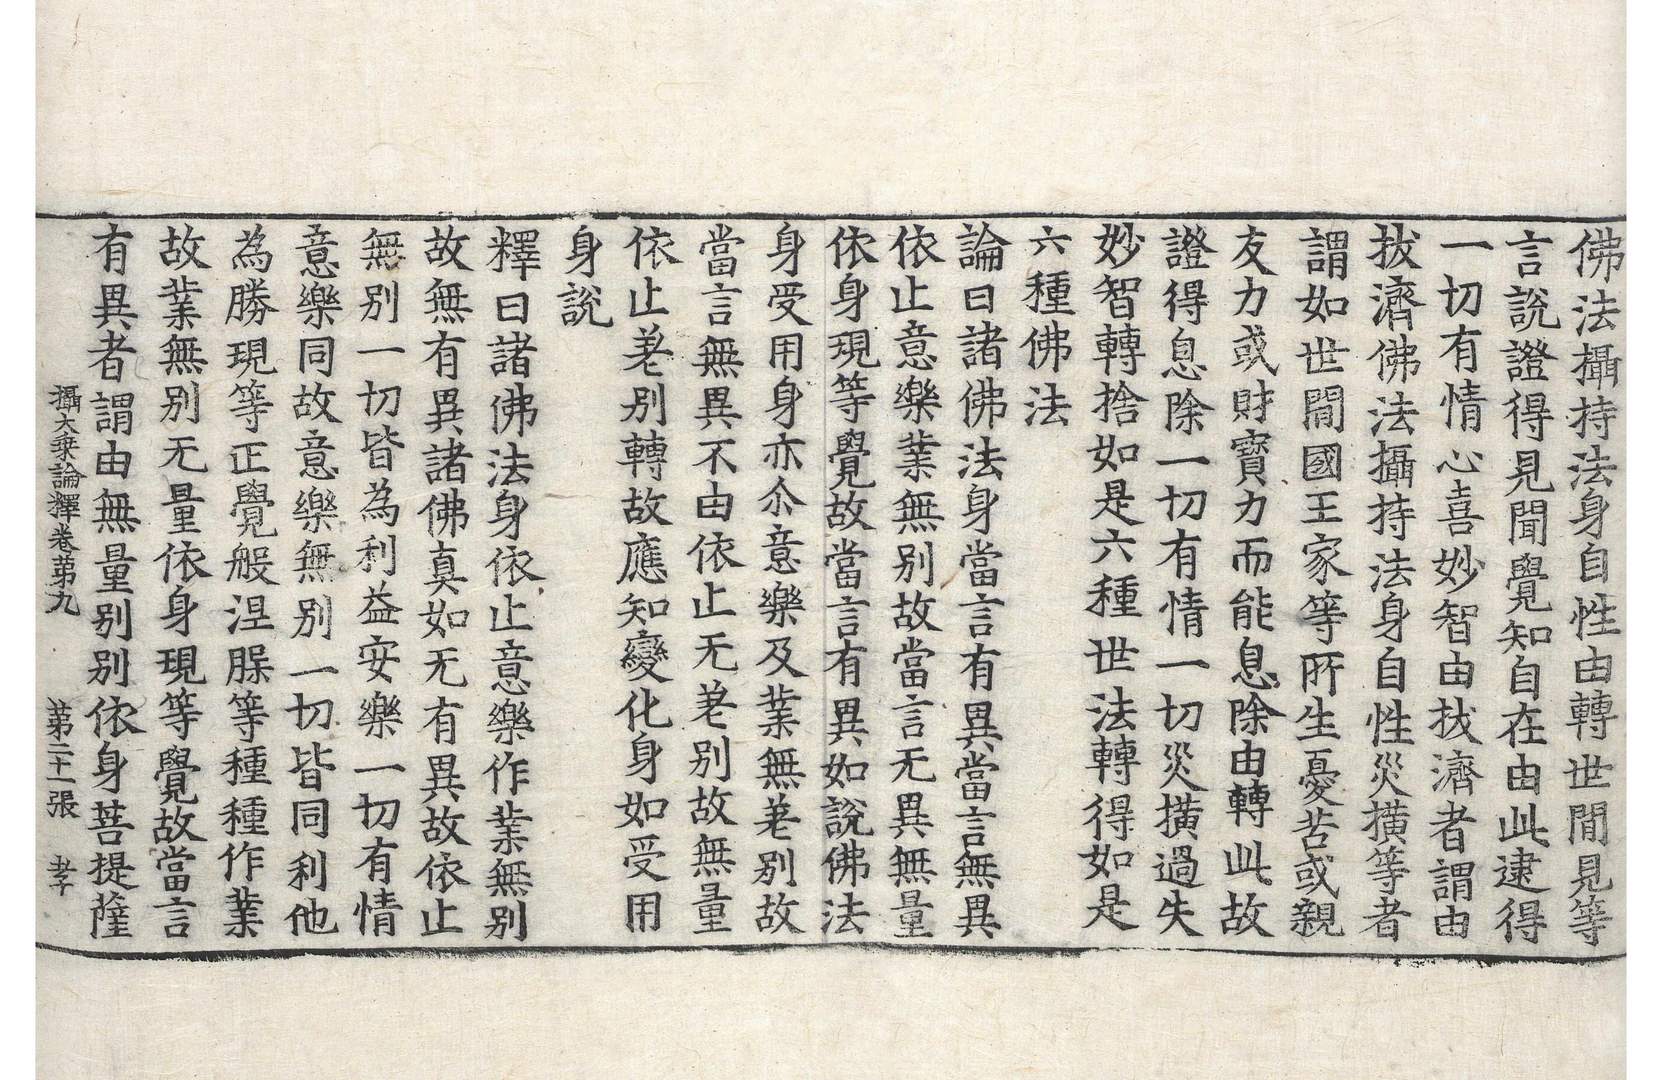 佛法攝持法身自性由轉世間見等
言說證得見聞覺知自在由此逮得
一切有情心喜妙智由拔濟者謂由
拔濟佛法攝持法身自性災橫等者
謂如世間國王家等所生憂苦或親
友力或財寶力而能息除由轉此故
證得息除一切有情一切災橫過失
妙智轉捨如是六種世法轉得如是
六種佛法
論曰諸佛法身當言有異當言無異
依止意樂業無別故當言无異無量
依身現等覺故當言有異如說佛法
身受用身亦尒意樂及業無差別故
當言無異不由依止无差別故無量
依止差別轉故應知變化身如受用
身說
釋曰諸佛法身依止意樂作業無別
故無有異諸佛真如无有異故依止
無別一切皆為利益安樂一切有情
意樂同故意樂無別一切皆同利他
為勝現等正覺般涅槃等種種作業
故業無別无量依身現等覺故當言
有異者謂由無量別別依身菩提薩
攝大乘論釋卷第九　第二十一張　孝